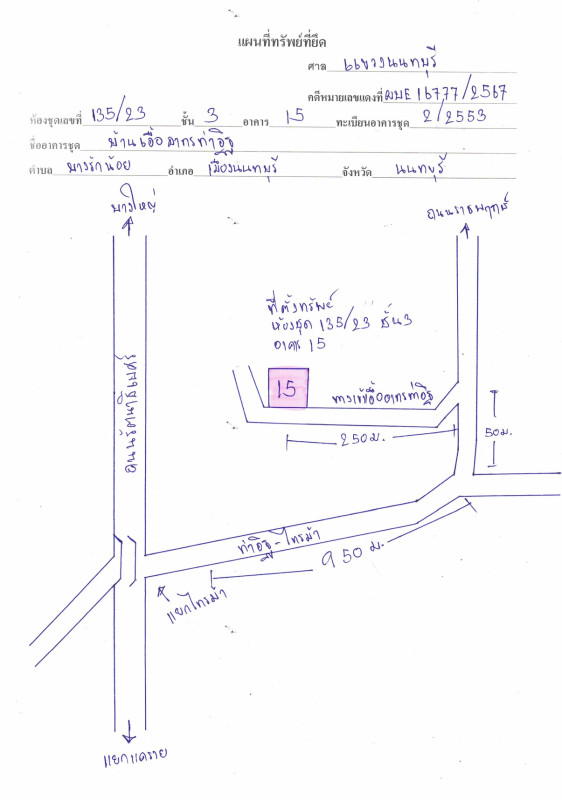 แผนที่ทรัพย์ที่ยึด
ศาล แขวงนนทบุรี
คดีหมายเลขแดงที่ ผบE 16777/2567
ห้องชุดเลขที่ 135/23 ชั้น 3 อาคาร 15 ทะเบียนอาคารชุด 2/2553
ชื่ออาคารชุด บ้านเอื้ออาทรท่าอิฐ
ตำบล บางรักน้อย อำเภอ เมืองนนทบุรี จังหวัด นนทบุรี
บางใหญ่
ถนนราชพฤกษ์
ที่ตั้งทรัพย์
ห้องชุด 135/23 ชั้น 3
อาคาร 15
15
ทางเข้าเอื้ออาทรท่าอิฐ
ถนนรัตนาธิเบศร์
250 ม.
50 ม.
ท่าอิฐ-ไทรม้า
950 ม.
แยกไทรม้า
แยกแคราย